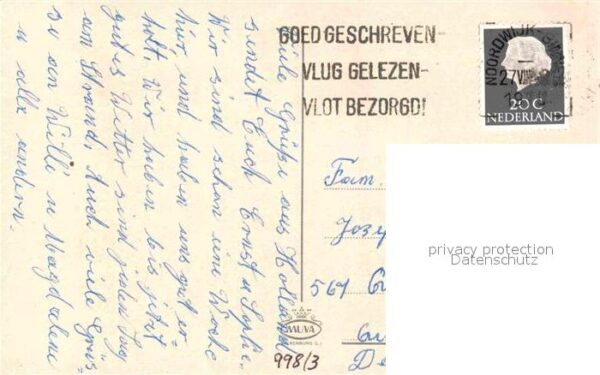 Viele Grüße aus Holland
sendet Euch Ernst u Sofie.
Wir sind schon eine Woche
hier und haben uns gut er-
holt. Wir haben bis jetzt
gutes Wetter sind jeden Tag
am Strand. Auch viele Grüs-
se an Willi u Magdalene
u alle andern.
GOED GESCHREVEN-
VLUG GELEZEN-
VLOT BEZORGD!
NOORDWIJK-BINNEN
27 VIII
20 C
NEDERLAND
Fam.
Josef
564
De
MUVA
VALKENBURG
998/3
privacy protection
Datenschutz